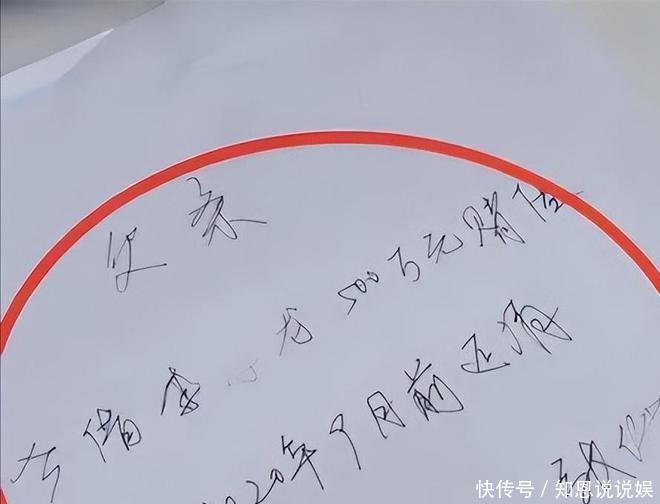 欠条
今借李 龙500万元赌债
2020年9月前还清
快传号/知恩说说娱